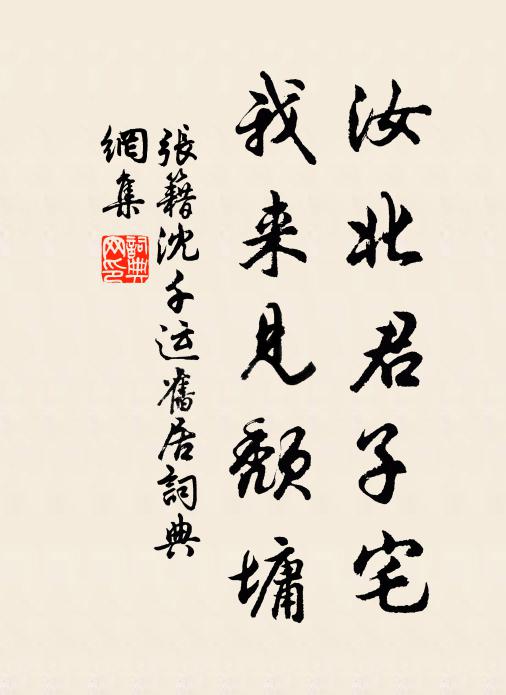 汝北君子宅
我来见颓墉
張籍沈千运舊居詞典
網集
詞典
网印